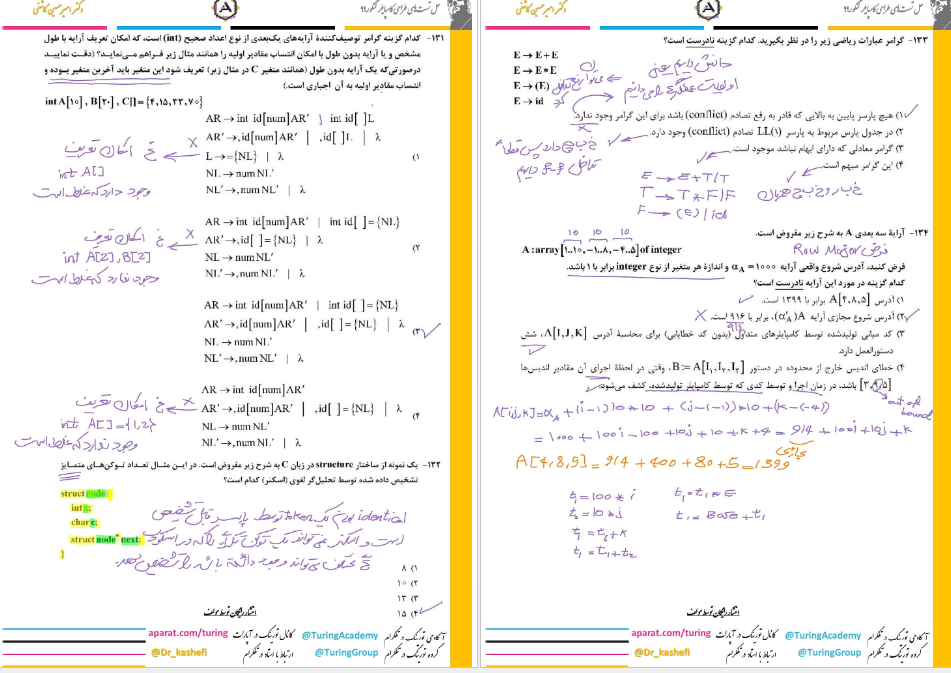 حل تست‌های طراحی کامپایلر کنکور ۹۹
A
دکتر امیرحسین کاشفی
۱۳۳- گرامر عبارات ریاضی زیر را در نظر بگیرید. کدام گزینه نادرست است؟
E → E + E
E → E * E
E → (E)
E → id
۱) هیچ پارسر پایین به بالایی که قادر به رفع تصادم (conflict) باشد برای این گرامر وجود ندارد.
۲) در جدول پارس مربوط به پارسر LL(۱) تصادم (conflict) وجود دارد.
۳) گرامر معادلی که دارای ابهام نباشد موجود است.
۴) این گرامر مبهم است.
E → E+T/T
T → T*F|F
F → (E)|id
۱۳۴- آرایهٔ سه بعدی A به شرح زیر مفروض است.
10 10 10
A : array [۱..۱۰, −۱..۸, −۴..۵] of integer
فرض Row Major
فرض کنید، آدرس شروع واقعی آرایه α_A = ۱۰۰۰ و اندازهٔ هر متغیر از نوع integer برابر با ۱ باشد.
کدام گزینه در مورد این آرایه نادرست است؟
۱) آدرس A[۴,۸,۵] برابر با ۱۳۹۹ است.
۲) آدرس شروع مجازی آرایه A (α'_A)، برابر با ۹۱۶ است.
914
۳) کد میانی تولیدشده توسط کامپایلرهای متداول (بدون کد خطایابی) برای محاسبهٔ آدرس A[I,J,K]، شش
دستورالعمل دارد.
۴) خطای اندیس خارج از محدوده در دستور B := A[I₁,I₂,I₃]، وقتی در لحظهٔ اجرای آن مقادیر اندیس‌ها
[۳,۸,۵] باشد، در زمان اجرا و توسط کدی که توسط کامپایلر تولیدشده، کشف می‌شود.
out of bound
A[i,j,k] = α_A + (i-1)10*10 + (j-(-1))*10 + (k-(-4))
= 1000 + 100i - 100 + 10j + 10 + k + 4 = 914 + 100i + 10j + k
A[4,8,5] = 914 + 400 + 80 + 5 = 1399
t₁ = 100 * i
t₂ = 10 * j
t₁ = t₁ + t₂
t₁ = Base + t₁
انتشار رایگان توسط مولف
آکادمی تورینگ در تلگرام @TuringAcademy کانال تورینگ در آپارات aparat.com/turing
گروه تورینگ در تلگرام @TuringGroup ارتباط با استاد در تلگرام @Dr_kashefi
حل تست‌های طراحی کامپایلر کنکور ۹۹
A
دکتر امیرحسین کاشفی
۱۳۱- کدام گزینه گرامر توصیف‌کنندهٔ آرایه‌های یک‌بعدی از نوع اعداد صحیح (int) است، که امکان تعریف آرایه با طول
مشخص و یا آرایه بدون طول با امکان انتساب مقادیر اولیه را همانند مثال زیر فراهم می‌نماید؟ (دقت نمایید
درصورتی‌که یک آرایه بدون طول (همانند متغیر C در مثال زیر) تعریف شود این متغیر باید آخرین متغیر بوده و
انتساب مقادیر اولیه به آن اجباری است.)
int A[۱۰] , B[۲۰] , C[] = {۴,۱۵,۲۳,۷۰}
AR → int id[num]AR' | int id[ ]L
AR' → ,id[num]AR' | ,id[ ]L | λ
L → = {NL} | λ
(۱
NL → num NL'
NL' → ,num NL' | λ
امکان تعریف
int A[]
وجود دارد که غلط است
AR → int id[num]AR' | int id[ ] = {NL}
AR' → ,id[ ] = {NL} | λ
(۲
NL → num NL'
NL' → ,num NL' | λ
امکان تعریف
int A[2], B[2]
وجود ندارد که غلط است
AR → int id[num]AR' | int id[ ] = {NL}
AR' → ,id[num]AR' | ,id[ ] = {NL} | λ
(۳
NL → num NL'
NL' → ,num NL' | λ
AR → int id[num]AR'
AR' → ,id[num]AR' | ,id[ ] = {NL} | λ
(۴
NL → num NL'
NL' → ,num NL' | λ
امکان تعریف
int A[] = {1,2}
وجود ندارد که غلط است
۱۳۲- یک نمونه از ساختار structure در زبان C به شرح زیر مفروض است. در این مثال تعداد توکن‌های متمایز
تشخیص داده شده توسط تحلیل‌گر لغوی (اسکنر) کدام است؟
struct node{
int i;
char c;
struct node* next;
}
۱) ۸
۲) ۱۰
۳) ۱۳
۴) ۱۵
انتشار رایگان توسط مولف
آکادمی تورینگ در تلگرام @TuringAcademy کانال تورینگ در آپارات aparat.com/turing
گروه تورینگ در تلگرام @TuringGroup ارتباط با استاد در تلگرام @Dr_kashefi